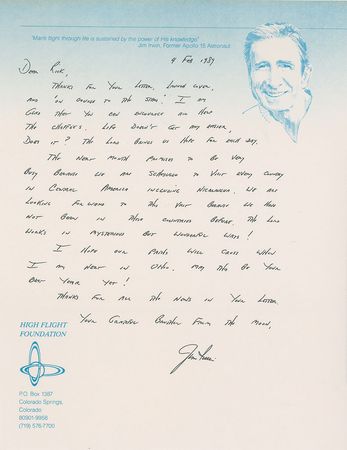 "Man's flight through life is sustained by the power of His knowledge"
Jim Irwin, Former Apollo 15 Astronaut
9 Feb 1989
Dear Rick,
Thanks for your letter,
and "
I am
glad that you can
the chapters. Life doesn't get any easier,
does it? The Lord gives us hope for each day.
The next month promises to be very
busy because we are scheduled to visit every country
in Central America including Nicaragua. We are
looking forward to this visit because we have
not been in these countries before. The Lord
works in mysterious but wonderful ways!
I hope our paths will cross when
I am next in Ohio. May this be your
best year yet!
Thanks for all the news in your letter.
Your Grateful Brother from the Moon,
Jim Irwin
HIGH FLIGHT
FOUNDATION
P.O. Box 1387
Colorado Springs,
Colorado
80901-9958
(719) 576-7700